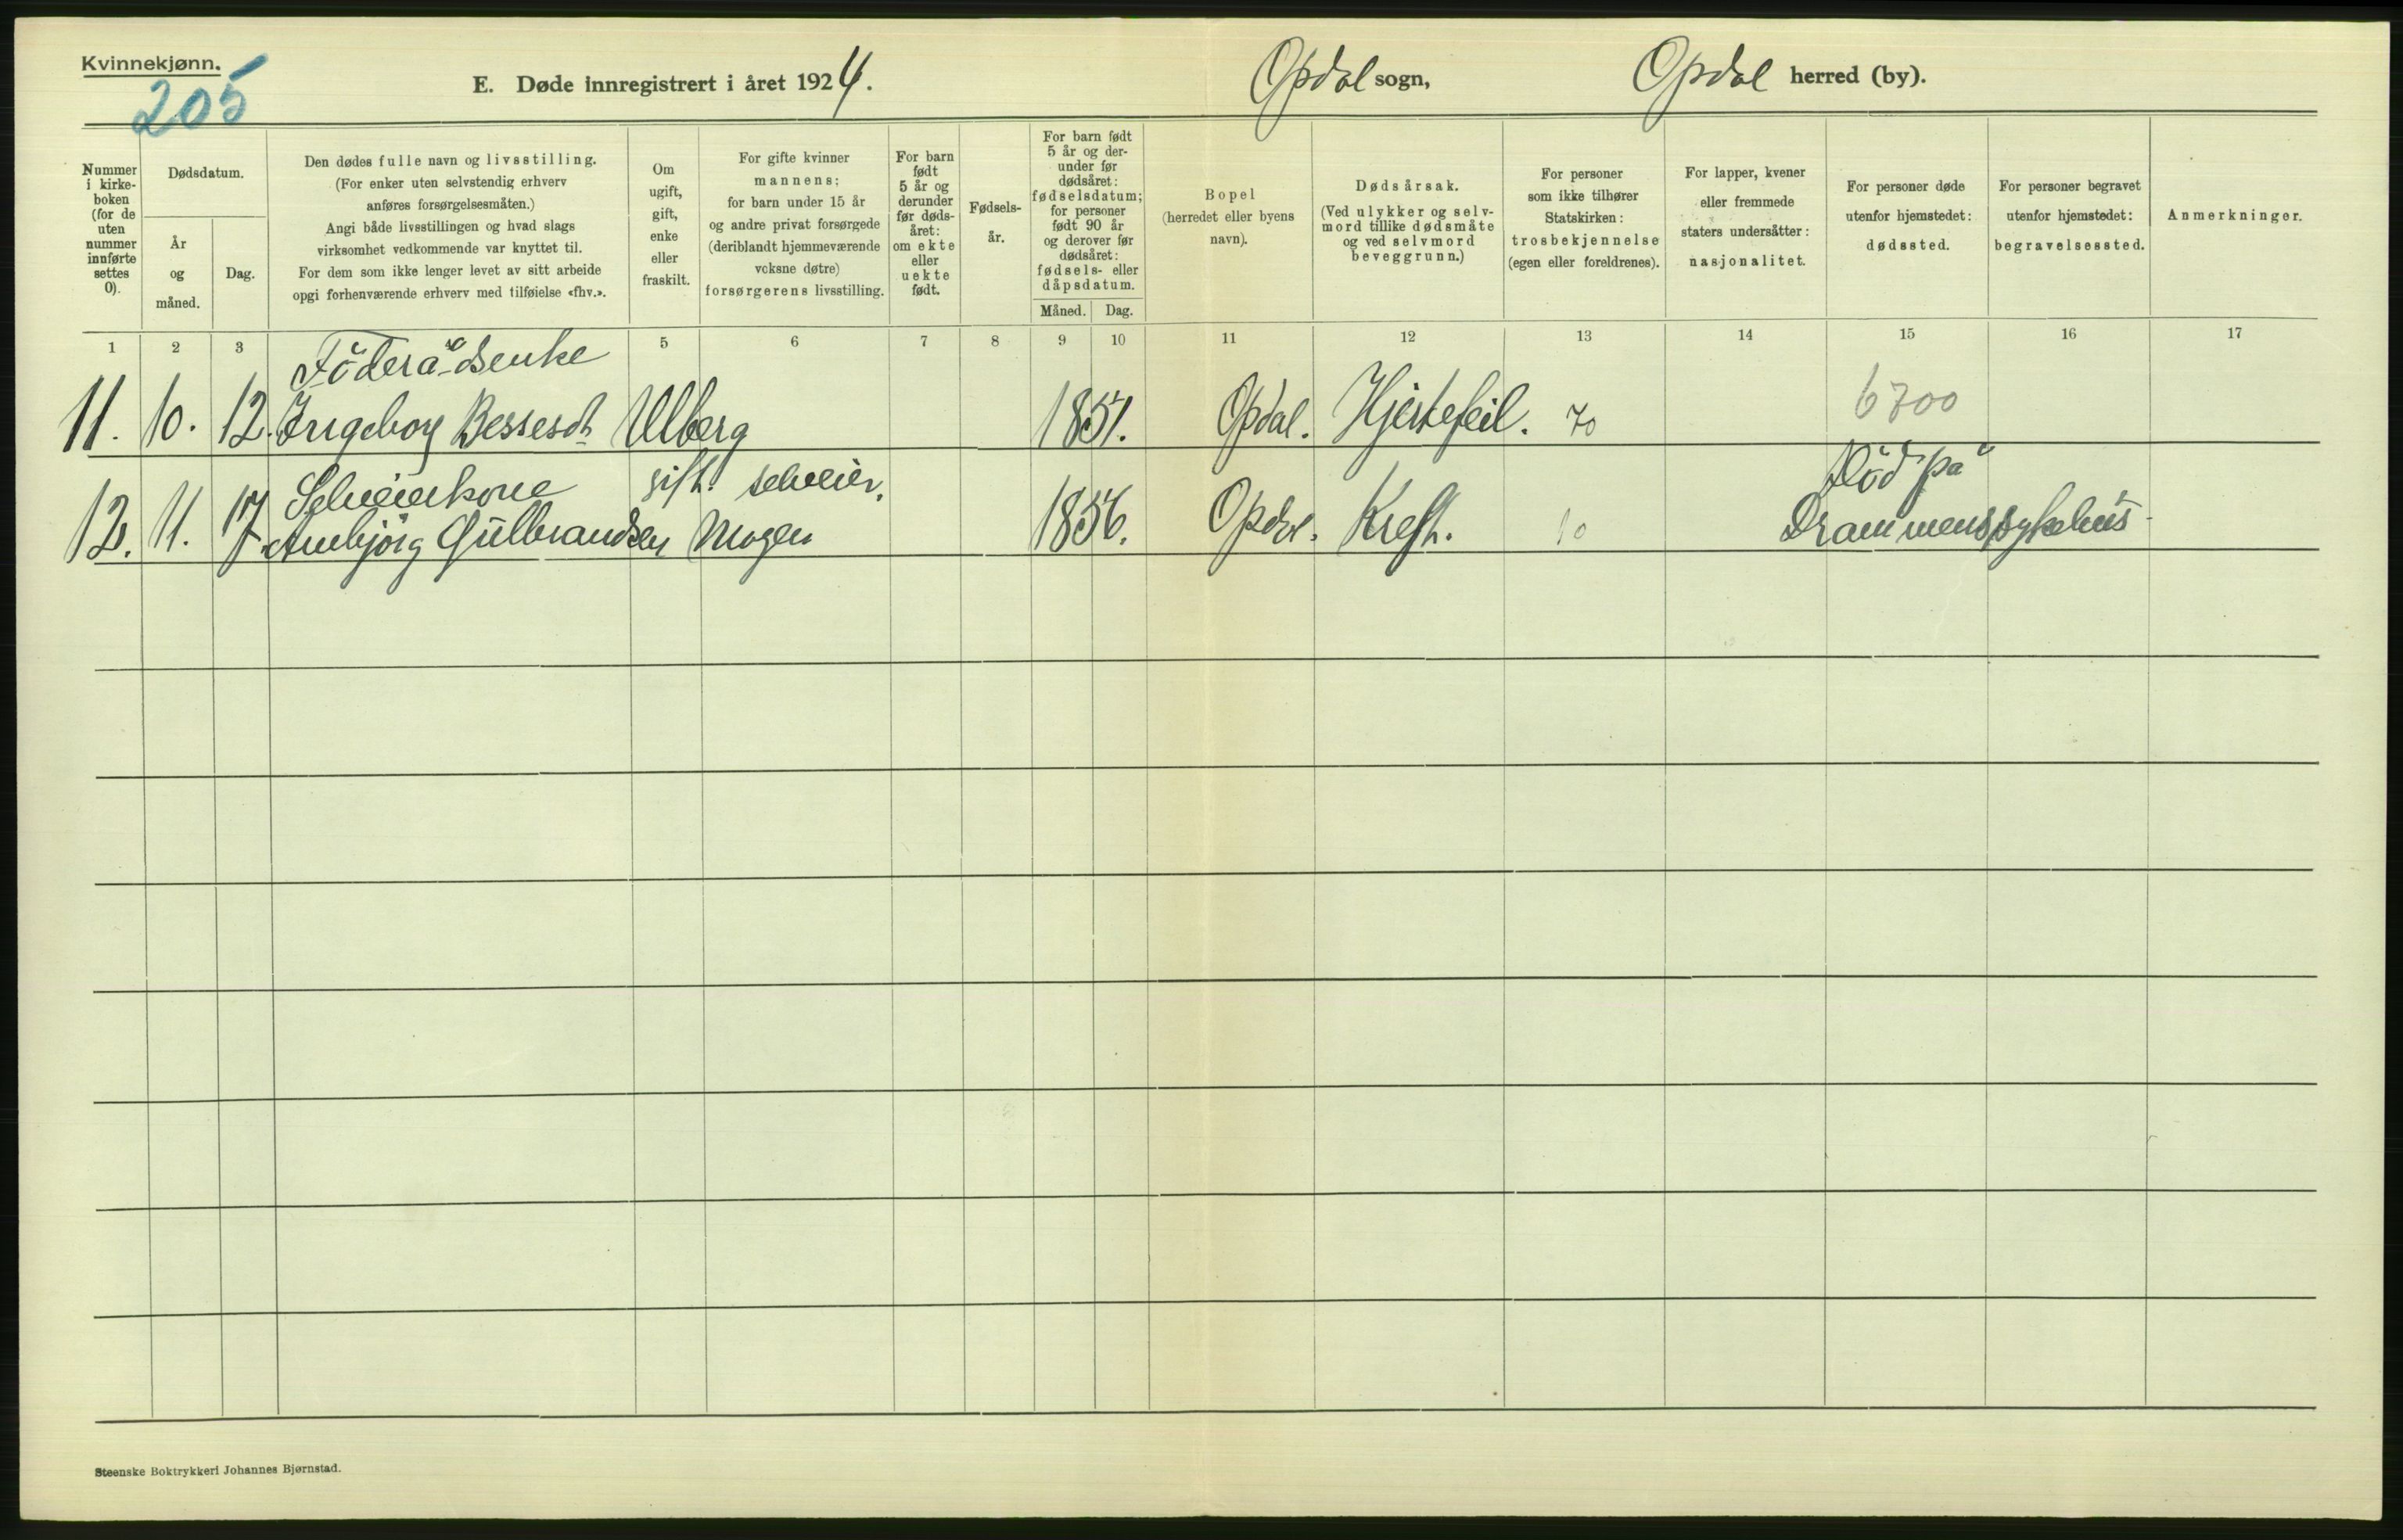 Kvinnekjønn.
205
E. Døde innregistrert i året 1924.
Opdal sogn,
Opdal herred (by).
Nummer
i kirke-
boken
(for de
uten
nummer
innførte
settes
0).
Dødsdatum.
År
og
måned.
Dag.
Den dødes fulle navn og livsstilling.
(For enker uten selvstendig erhverv
anføres forsørgelsesmåten.)
Angi både livsstillingen og hvad slags
virksomhet vedkommende var knyttet til.
For dem som ikke lenger levet av sitt arbeide
opgi forhenværende erhverv med tilføielse «fhv.».
Om
ugift,
gift,
enke
eller
fraskilt.
For gifte kvinner
mannens;
for barn under 15 år
og andre privat forsørgede
(deriblandt hjemmeværende
voksne døtre)
forsørgerens livsstilling.
For barn
født
5 år og
derunder
før døds-
året:
om ekte
eller
uekte
født.
Fødsels-
år.
For barn født
5 år og der-
under før
dødsåret:
fødselsdatum;
for personer
født 90 år
og derover før
dødsåret:
fødsels- eller
dåpsdatum.
Måned.
Dag.
Bopel
(herredet eller byens
navn).
Dødsårsak.
(Ved ulykker og selv-
mord tillike dødsmåte
og ved selvmord
beveggrunn.)
For personer
som ikke tilhører
Statskirken:
trosbekjennelse
(egen eller foreldrenes).
For lapper, kvener
eller fremmede
staters undersåtter:
nasjonalitet.
For personer døde
utenfor hjemstedet:
dødssted.
For personer begravet
utenfor hjemstedet:
begravelsessted.
Anmerkninger.
1 2 3 5 6 7 8 9 10 11 12 13 14 15 16 17
Föderådsenke
11. 10. 12. Ingeborg Bessesdt Ulberg 1851. Opdal. Hjertefeil. 70 6700
Selveierkone gift. selveier. Död på
12. 11. 17. Gulbrandsen Mogen 1856. Opdal. Kreft. 10 Drammens sykehus
Steenske Boktrykkeri Johannes Bjørnstad.